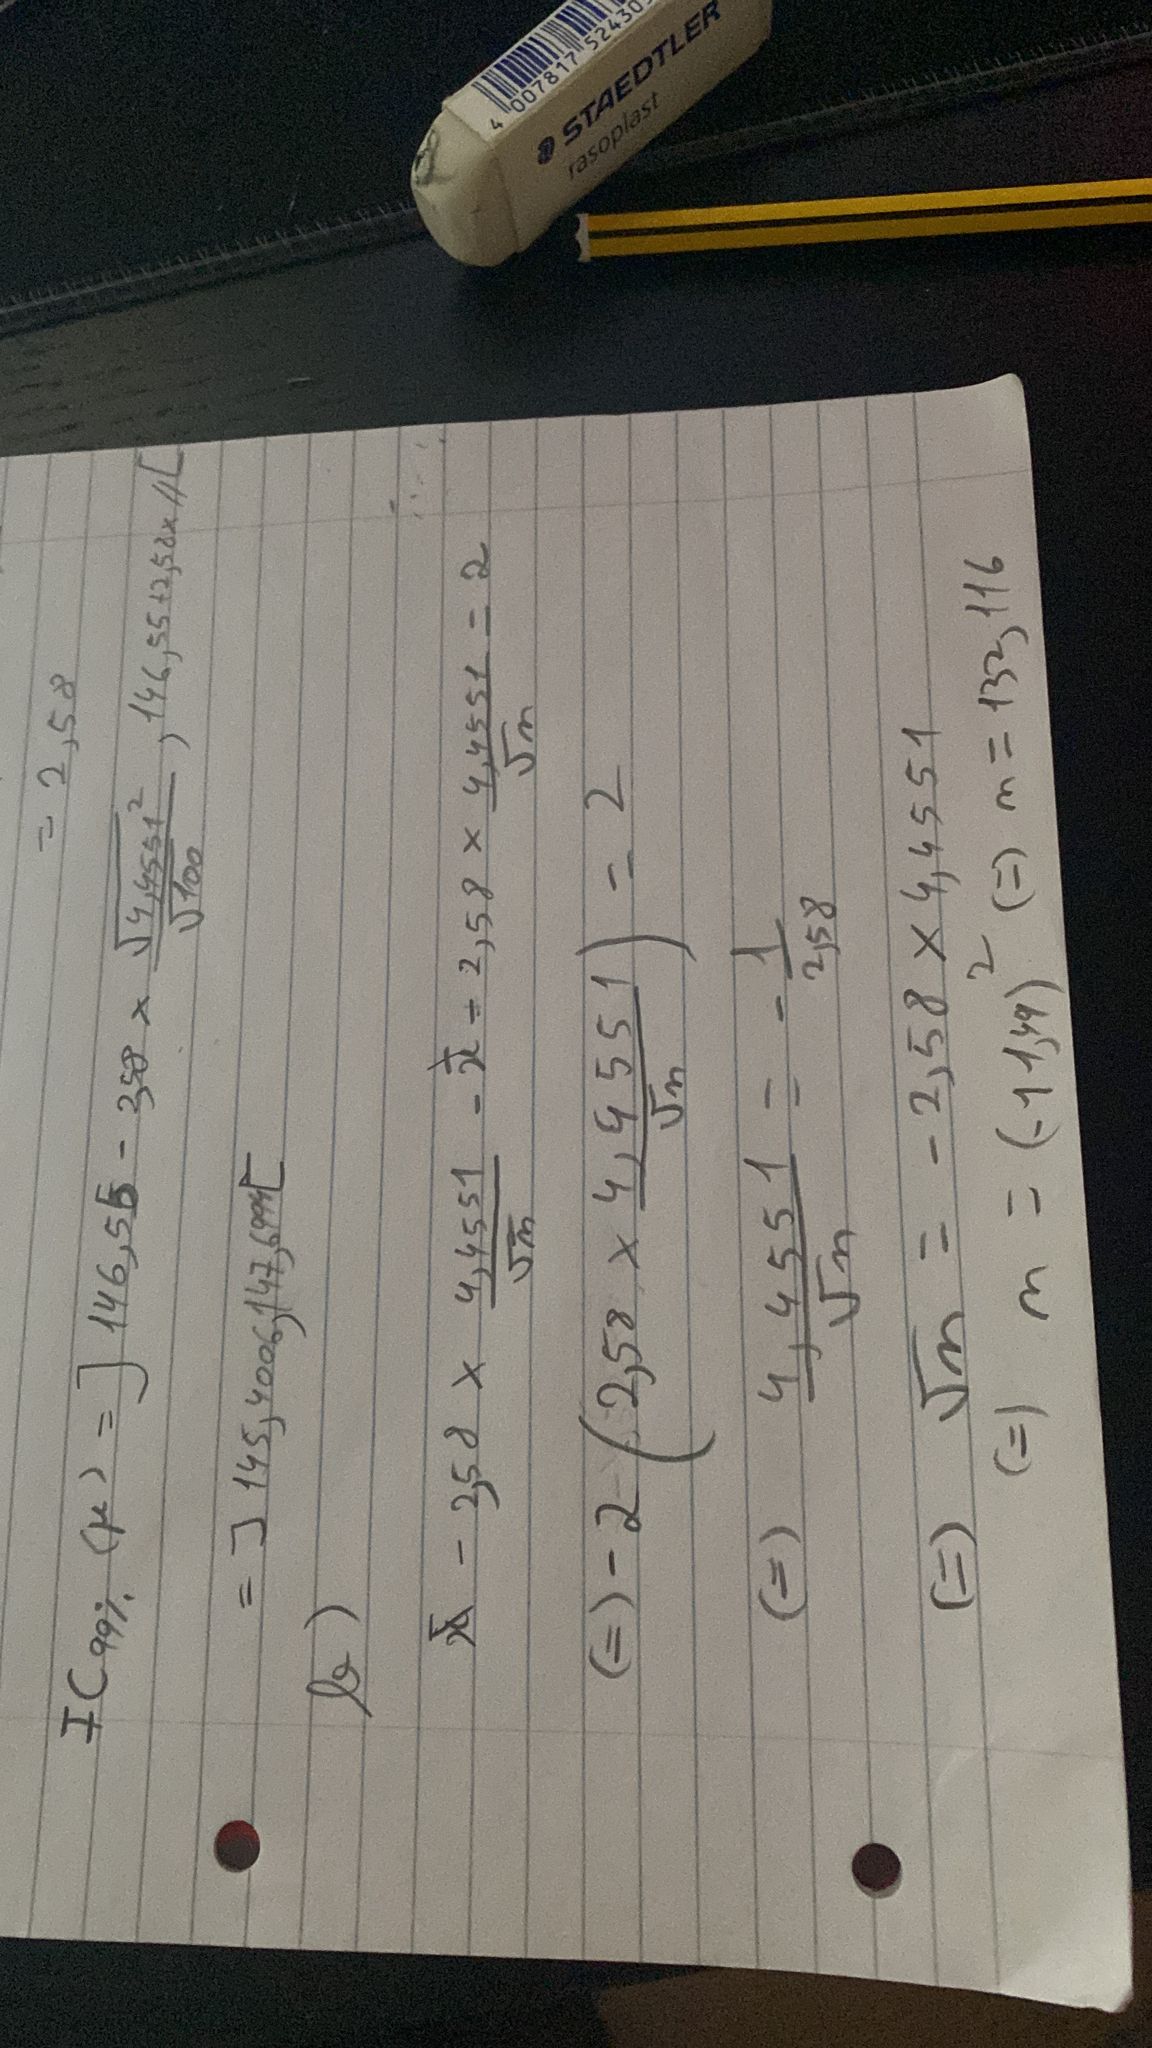 = 2,58
IC99% (μ) = ] 146,55 - 2,58 × √4,4551² / √100 , 146,55+2,58× // [
= ] 145,4006, 147,6994 [
b)
x̄ - 2,58 × 4,4551 / √n - x̄ - 2,58 × 4,4551 / √n = 2
(=) - 2 ( 2,58 × 4,4551 / √n ) = 2
(=) 4,4551 / √n = - 1 / 2,58
(=) √n = - 2,58 × 4,4551
(=) n = (-11,49)² (=) n = 132,116
4 007817 52430
STAEDTLER
rasoplast